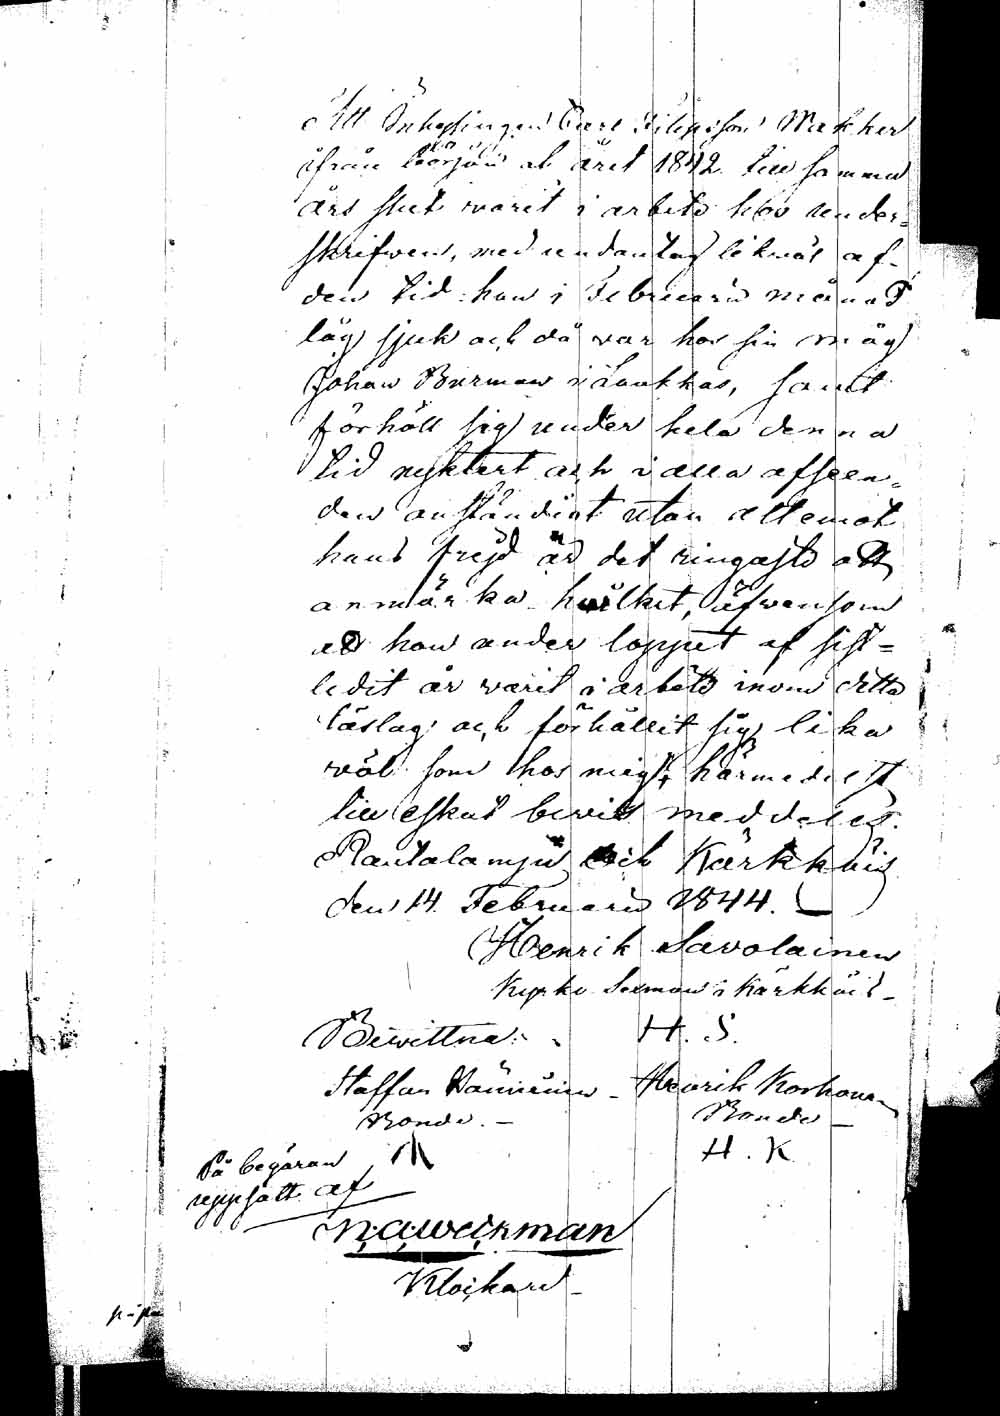 Att Inhysingen Carl Filipsson Makker
ifrån början al året 1842 till samma
års slut varit i arbete hos under=
skrifven, med undantag likväl af
den tid han i Februarii månad
låg sjuk och då var hos sin måg
Johan Burman i Laukkas, samt
förhöll sig under hela denna
tid nyktert och i alla afseen=
den anständigt utan att emot
hans frejd är det ringaste att
anmärka hvilket, äfvensom
att han under loppet af sist=
ledit år varit i arbete inom detta
låslag och förhållit sig lika
väl som hos mig, härmedelst
till äskat bevis meddeles.
Rautalampi och Kärkkäis
den 14 Februarii 1844.
Henrik Savolainen
Kyrko Sexman i Kärkkäis
Bewittna:
H. S.
Staffan Hänninen - Henrik Korhonen
Bonde. - Bonde -
H. K
På begäran
uppsatt af
N: A: Weckman
Klockare